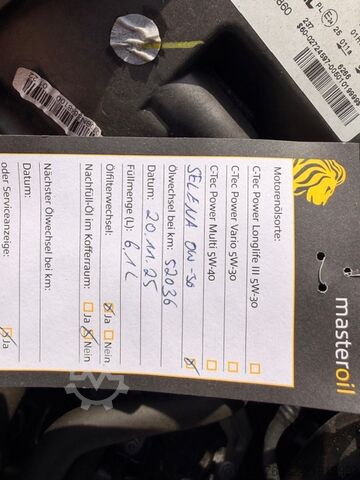 masteroil
Motorenölsorte:
C-Tec Power Longlife III 5W-30
C-Tec Power Vario 5W-30
C-Tec Power Multi 5W-40
SELENA 0W-30
Ölwechsel bei km: 52036
Datum: 20.11.25
Füllmenge (L): 6,1L
Ölfilterwechsel: Ja Nein
Nachfüll-Öl im Kofferraum: Ja Nein
Nächster Ölwechsel bei km:
Datum:
oder Serviceanzeige: Ja